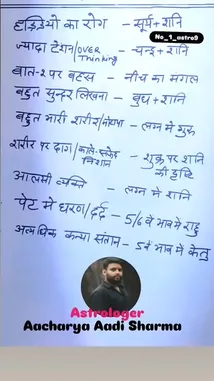 No_1_astro9
हड्डियों का रोग - सूर्य + शनि
ज्यादा टेंशन/OVER Thinking - चन्द्र + शनि
बात-२ पर बहस - नीच का मंगल
बहुत सुन्दर लिखना - बुध + शनि
बहुत भारी शरीर/मोटापा - लग्न में गुरु
शरीर पर दाग/काले-सफेद निशान - शुक्र पर शनि की दृष्टि
आलसी व्यक्ति - लग्न में शनि
पेट में धरण/दर्द - 5/6 वें भाव में राहु
अत्यधिक कन्या संतान - 5वें भाव में केतु
Astrologer
Aacharya Aadi Sharma